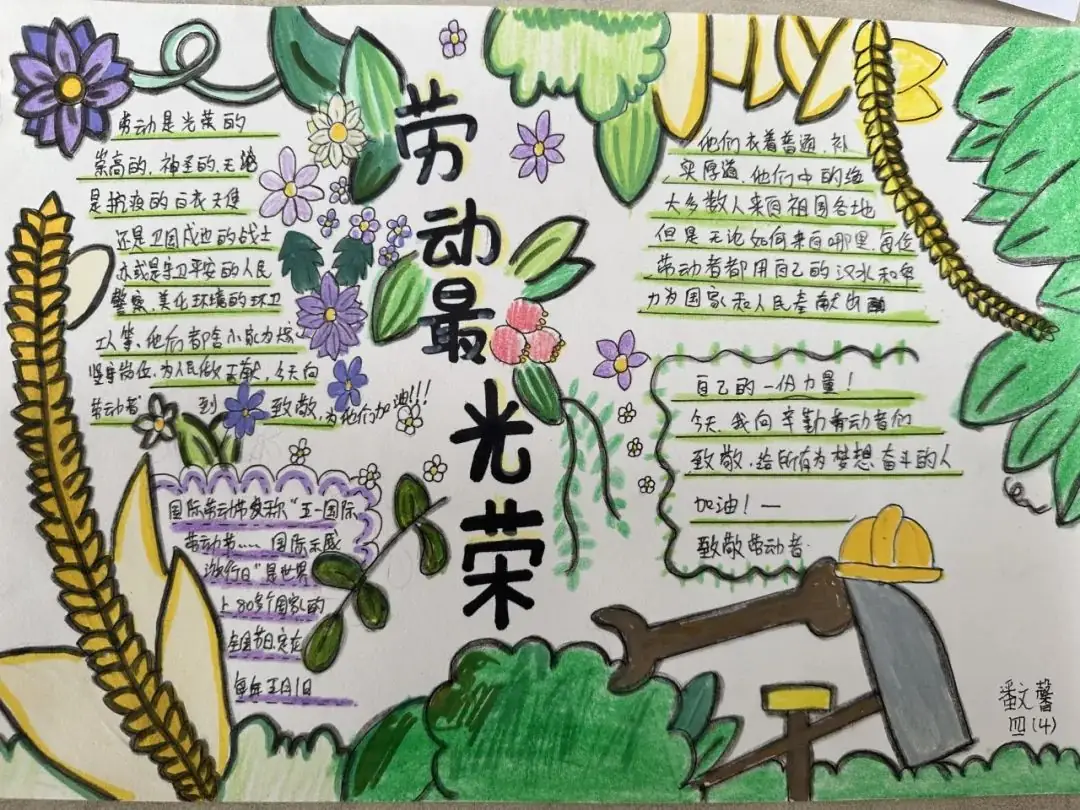 劳动最光荣
劳动是光荣的
崇高的、神圣的、无论
是抗疫的白衣天使
还是卫国戍边的战士
亦或是守卫平安的人民
警察、美化环境的环卫
工人等,他们都舍小家为大家
坚守岗位,为人民做贡献,今天向
劳动者 到 致敬,为他们加油!!!
国际劳动节又称“五一国际
劳动节…… 国际示威
游行日”是世界
上80多个国家的
全国节日,定在
每年五月1日
他们衣着普通、朴
实厚道,他们中的绝
大多数人来自祖国各地
但是无论如何来自哪里,每位
劳动者都用自己的汉水和努
力为国家和人民奉献出
自己的一份力量!
今天,我向辛勤劳动者们
致敬,给所有为梦想奋斗的人
加油!一
致敬劳动者.
潘文馨
四(4)